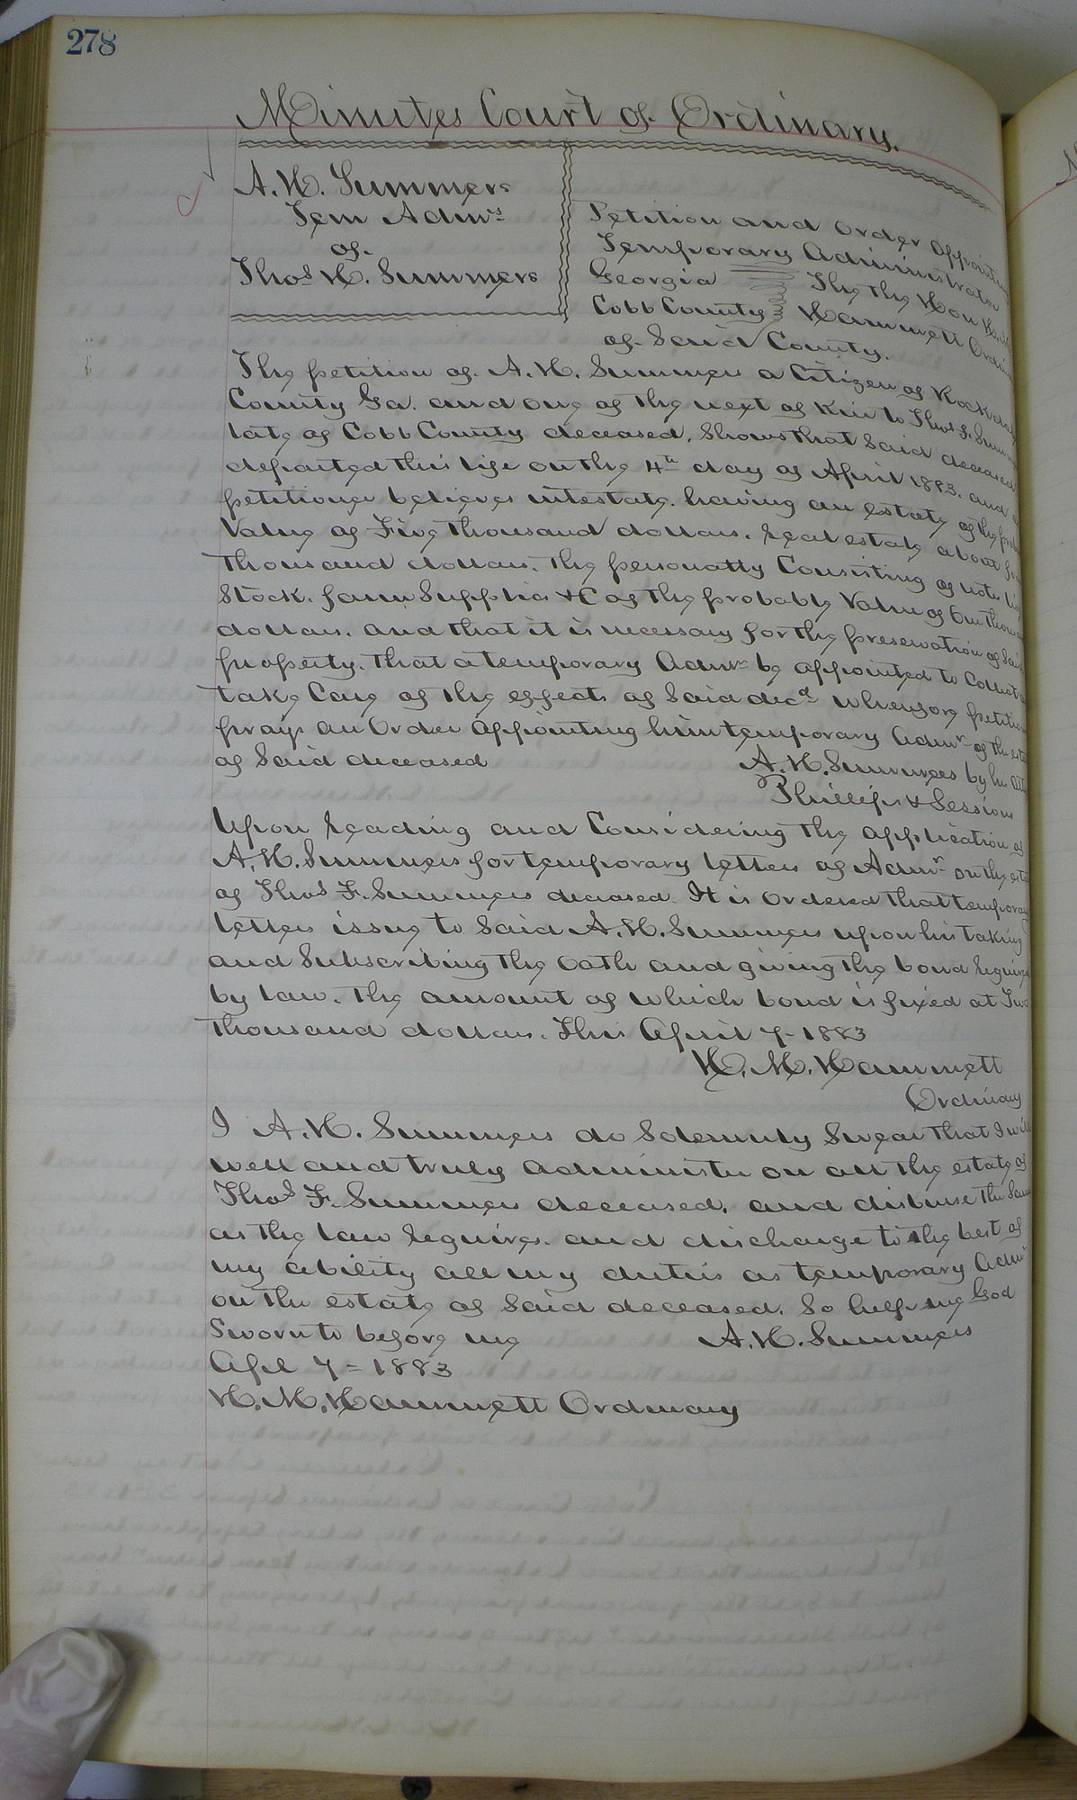 278
Minutes Court of Ordinary.
A. H. Summers
Tem Admrs
of
Thos H. Summers
Petition and Order Appointing
Temporary Administrator
Georgia } To the Hon
Cobb County } Hammett
of Said County.
The petition of A. H. Summers a Citizen of Rockdale
County Ga. and one of the next of Kin to Thos F. Summers
late of Cobb County deceased, Shows that Said deceased
departed this life on the 4th day of April 1883. and
petitioner believes intestate. having an estate of the
Value of Five thousand dollars. real estate about
thousand dollars. the personalty Consisting of notes
Stock, farm Supplies &C of the probably Value of One thousand
dollars. and that it is necessary for the preservation of Said
property. that a temporary Admr be appointed to Collect
take Care of the effects of Said decd Wherefore petitioner
prays an Order appointing him temporary Admr of the
of Said deceased A. H. Summers by his
Phillips & Sessions
Upon reading and Considering the application of
A. H. Summers for temporary letters of Admr on the
of Thos F. Summers deceased It is Ordered that temporary
letters issue to Said A. H. Summers upon his taking
and Subscribing the Oath and giving the bond required
by law. the amount of which bond is fixed at Two
thousand dollars. This April 7- 1883
H. M. Hammett
Ordinary
I A. H. Summers do Solemnly Swear that I will
well and truly administer on all the estate of
Thos F. Summers deceased. and disburse the Same
as the law requires. and discharge to the best of
my ability all my duties as temporary Admr
on the estate of Said deceased. So help me God
Sworn to before me A. H. Summers
Apl 7- 1883
H. M. Hammett Ordinary